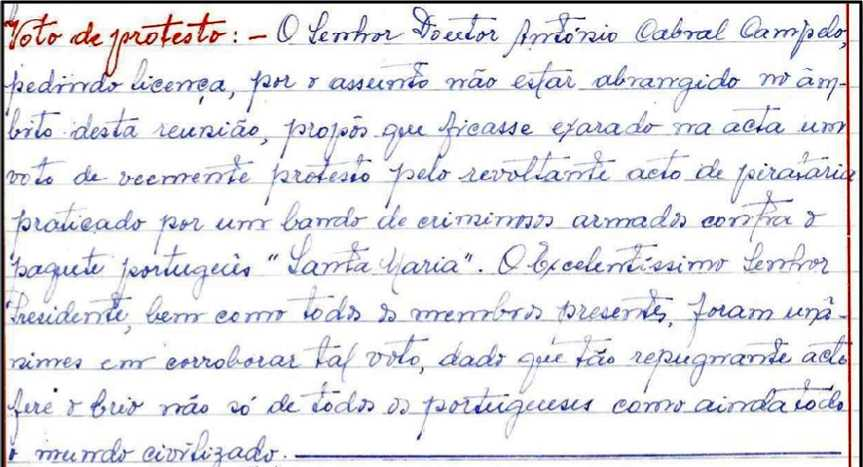 Voto de protesto: - O Senhor Doutor António Cabral Campelo,
pedindo licença, por o assunto não estar abrangido no âm-
bito desta reunião, propôs que ficasse exarado na acta um
voto de veemente protesto pelo revoltante acto de pirataria
praticado por um bando de criminosos armados contra o
paquete português "Santa Maria". O Excelentíssimo Senhor
Presidente, bem como todos os membros presentes, foram unâ-
nimes em corroborar tal voto, dado que tão repugnante acto
fere o brio não só de todos os portugueses como ainda todo
o mundo civilizado.